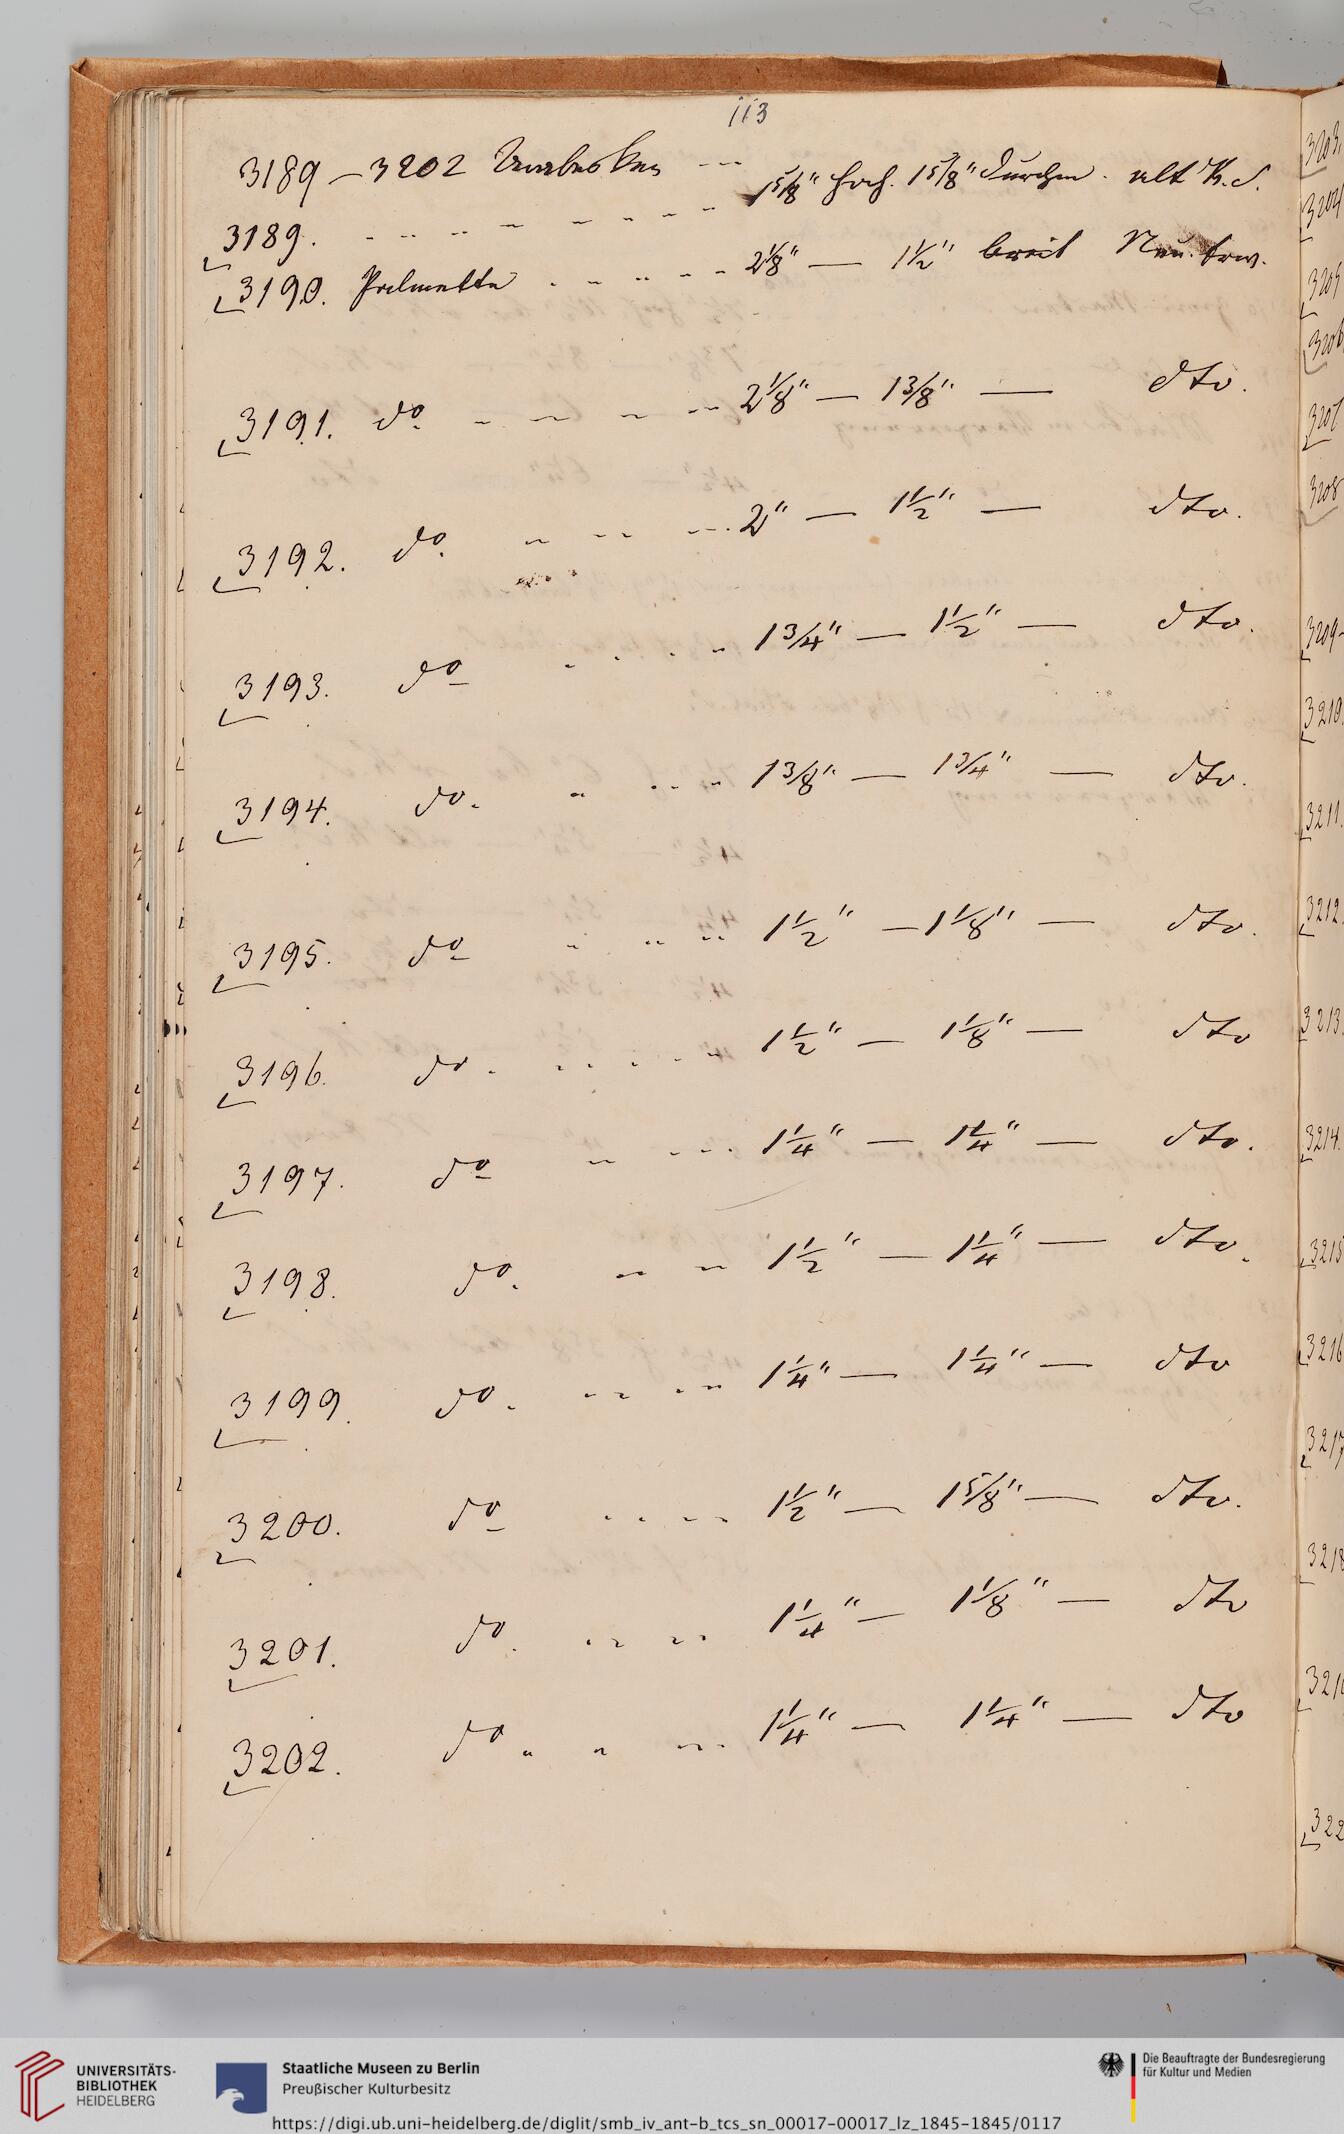 113
3189 – 3202 Arabesken
3189. 1 5/8" hoch. 1 5/8" Durchm. alt K. S.
3190. Palmette 2 1/8" — 1 1/2" breit Neu. erw.
3191. do 2 1/8" — 1 3/8" — dto.
3192. do. 2" — 1 1/2" — dto.
3193. do 1 3/4" — 1 1/2" — dto.
3194. do. 1 3/8" — 1 3/4" — dto.
3195. do 1 1/2" — 1 1/8" — dto.
3196. do. 1 1/2" — 1 1/8" — dto
3197. do 1 1/4" — 1 1/4" — dto.
3198. do. 1 1/2" — 1 1/4" — dto.
3199. do. 1 1/4" — 1 1/4" — dto
3200. do 1 1/2" — 1 5/8" — dto.
3201. do. 1 1/4" — 1 1/8" — dto
3202. do. 1 1/4" — 1 1/4" — dto
3203.
3204
3205
3206
3207
3208
3209
3210.
3211.
3212.
3213.
3214.
3215
3216
3217
3218
UNIVERSITÄTS-
BIBLIOTHEK
HEIDELBERG
Staatliche Museen zu Berlin
Preußischer Kulturbesitz
Die Beauftragte der Bundesregierung
für Kultur und Medien
https://digi.ub.uni-heidelberg.de/diglit/smb_iv_ant-b_tcs_sn_00017-00017_lz_1845-1845/0117